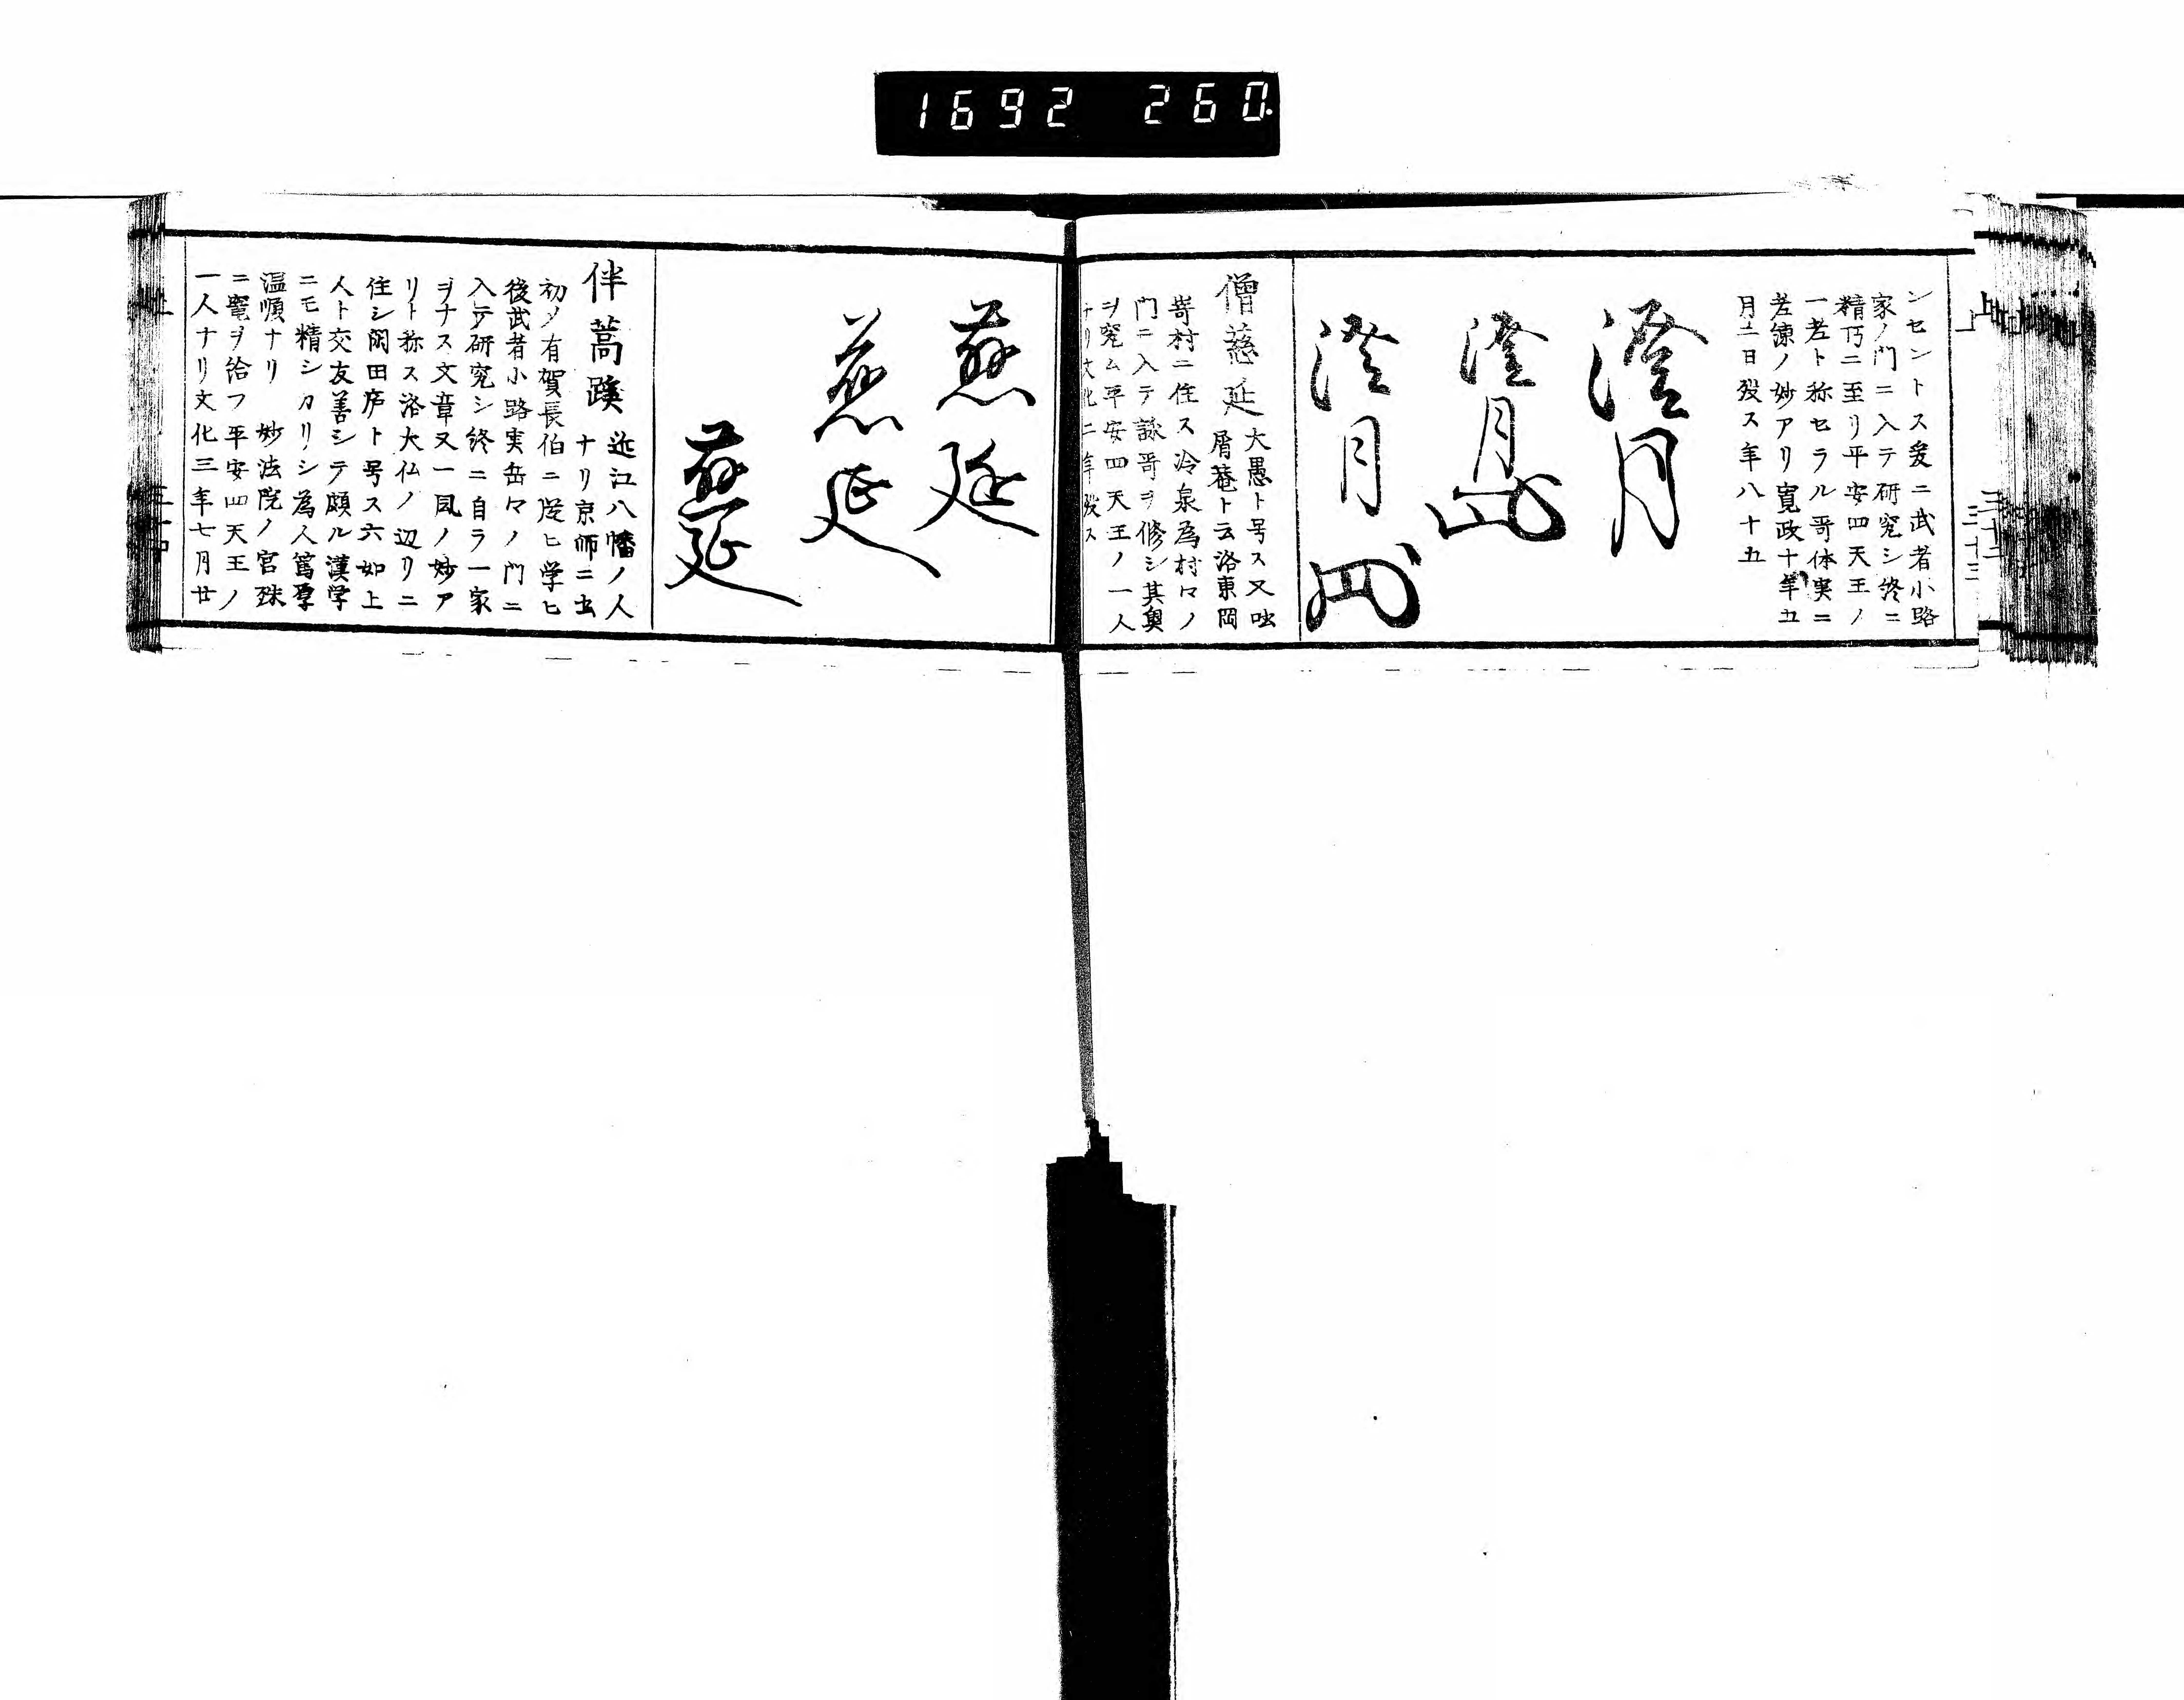 1692 260
ンセントス爰ニ武者小路
家ノ門ニ入テ研究シ終ニ
精巧ニ至リ平安四天王ノ
一老ト称セラル哥体実ニ
老錬ノ妙アリ寛政十年五
月二日歿ス年八十五
澄月
澄月
澄月
僧慈延
大愚ト号ス又吐
屑菴ト云洛東岡
嵜村ニ住ス冷泉為村々ノ
門ニ入テ詠哥ヲ修シ其奥
ヲ究ム平安四天王ノ一人
ナリ文化二年歿ス
慈延
慈延
慈延
伴蒿蹊
近江八幡ノ人
ナリ京師ニ出
初メ有賀長伯ニ従ヒ学ヒ
後武者小路実岳々ノ門ニ
入テ研究シ終ニ自ラ一家
ヲナス文章又一風ノ妙ア
リト称ス洛大仏ノ辺リニ
住シ閑田庐ト号ス六如上
人ト交友善シテ頗ル漢学
ニモ精シカリシ為人篤厚
温順ナリ 妙法院ノ宮殊
ニ寵ヲ給フ平安四天王ノ
一人ナリ文化三年七月廿